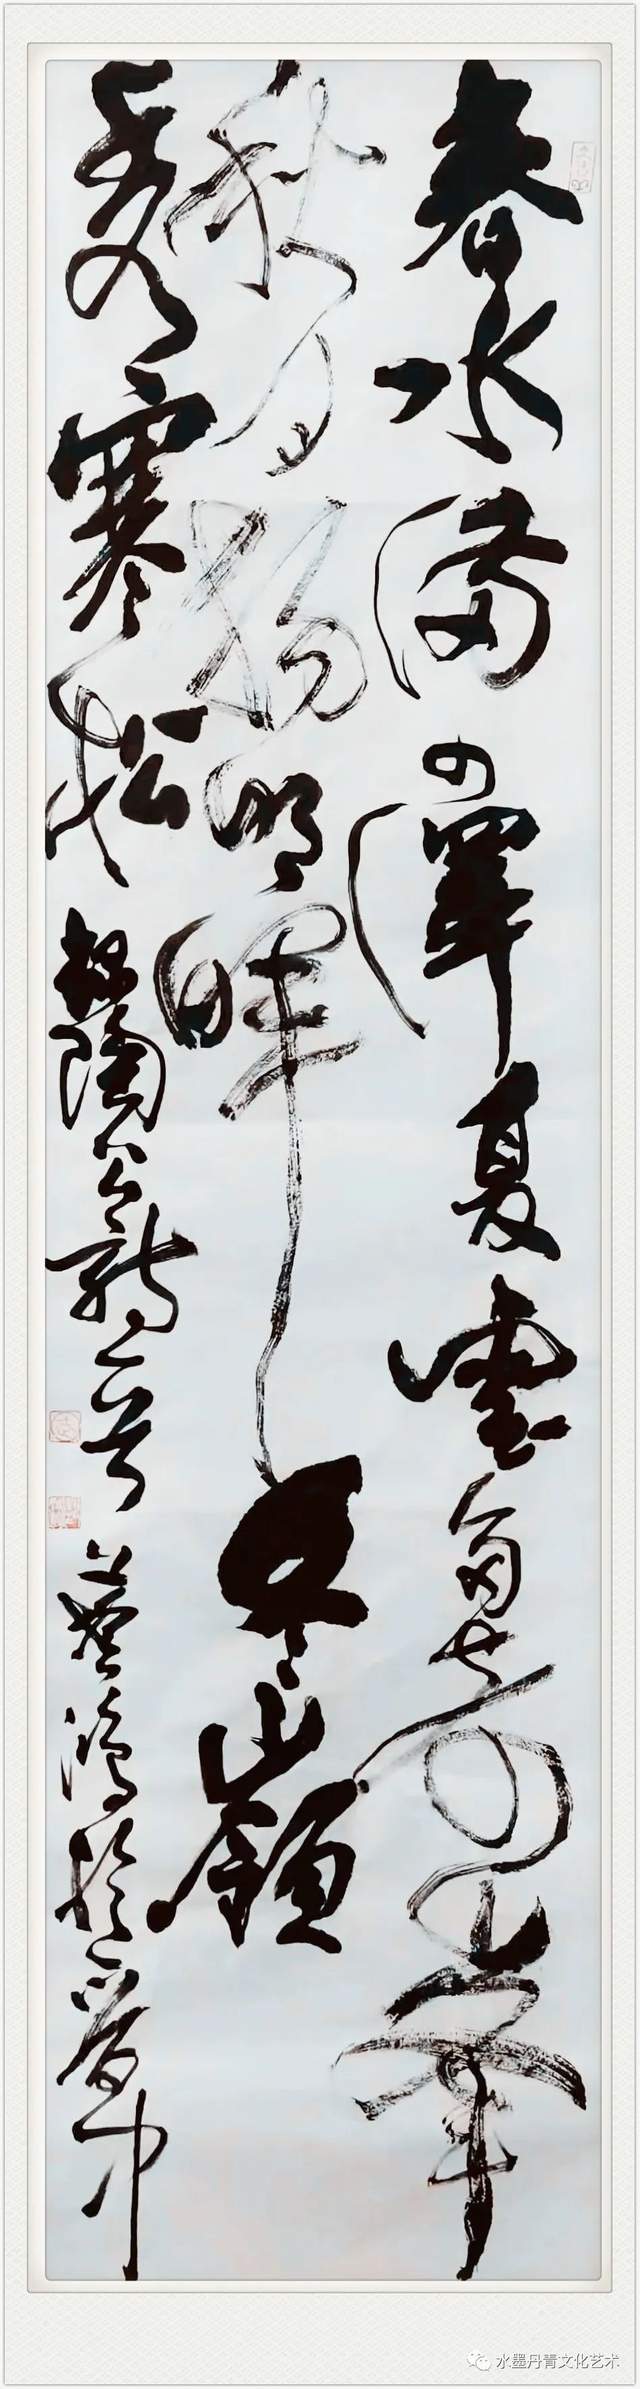 春水满四泽夏云多奇峰
秋月扬明晖冬山岭
秀寒松 录陶公诗一首 艺鸿于京中
水墨丹青文化艺术